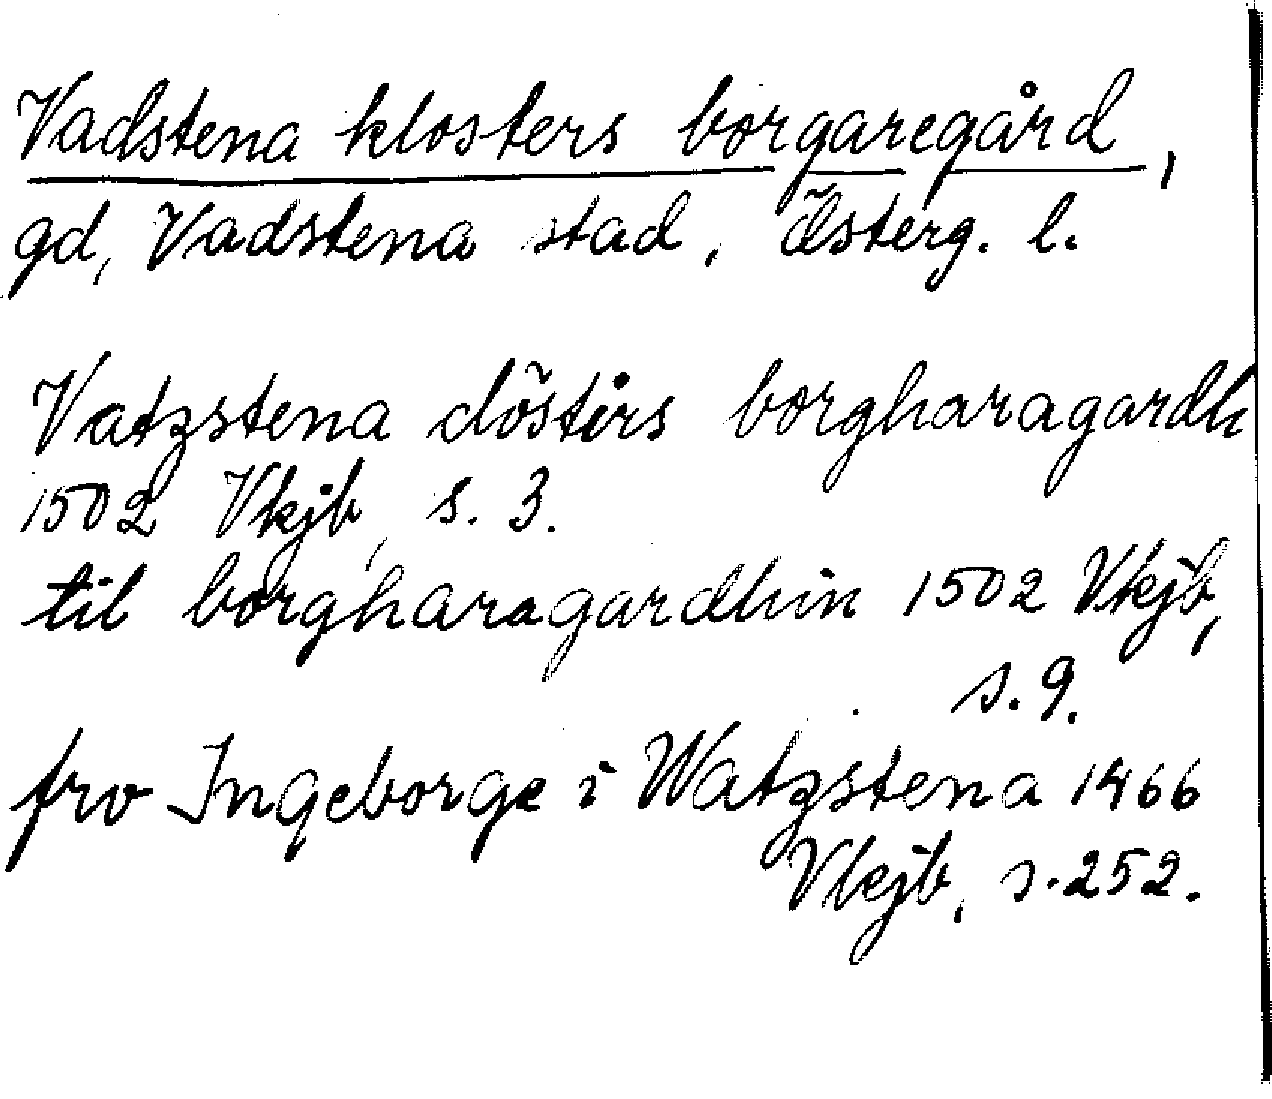 Vadstena klosters borgaregård,
gd, Vadstena stad, Österg. l.
Vatzstena clöstirs borgharagardh
1502 Vkjb, s. 3.
til borgharagardhin 1502 Vkjb,
s. 9.
frv Ingeborge i Watzstena 1466
Vkjb, s. 252.